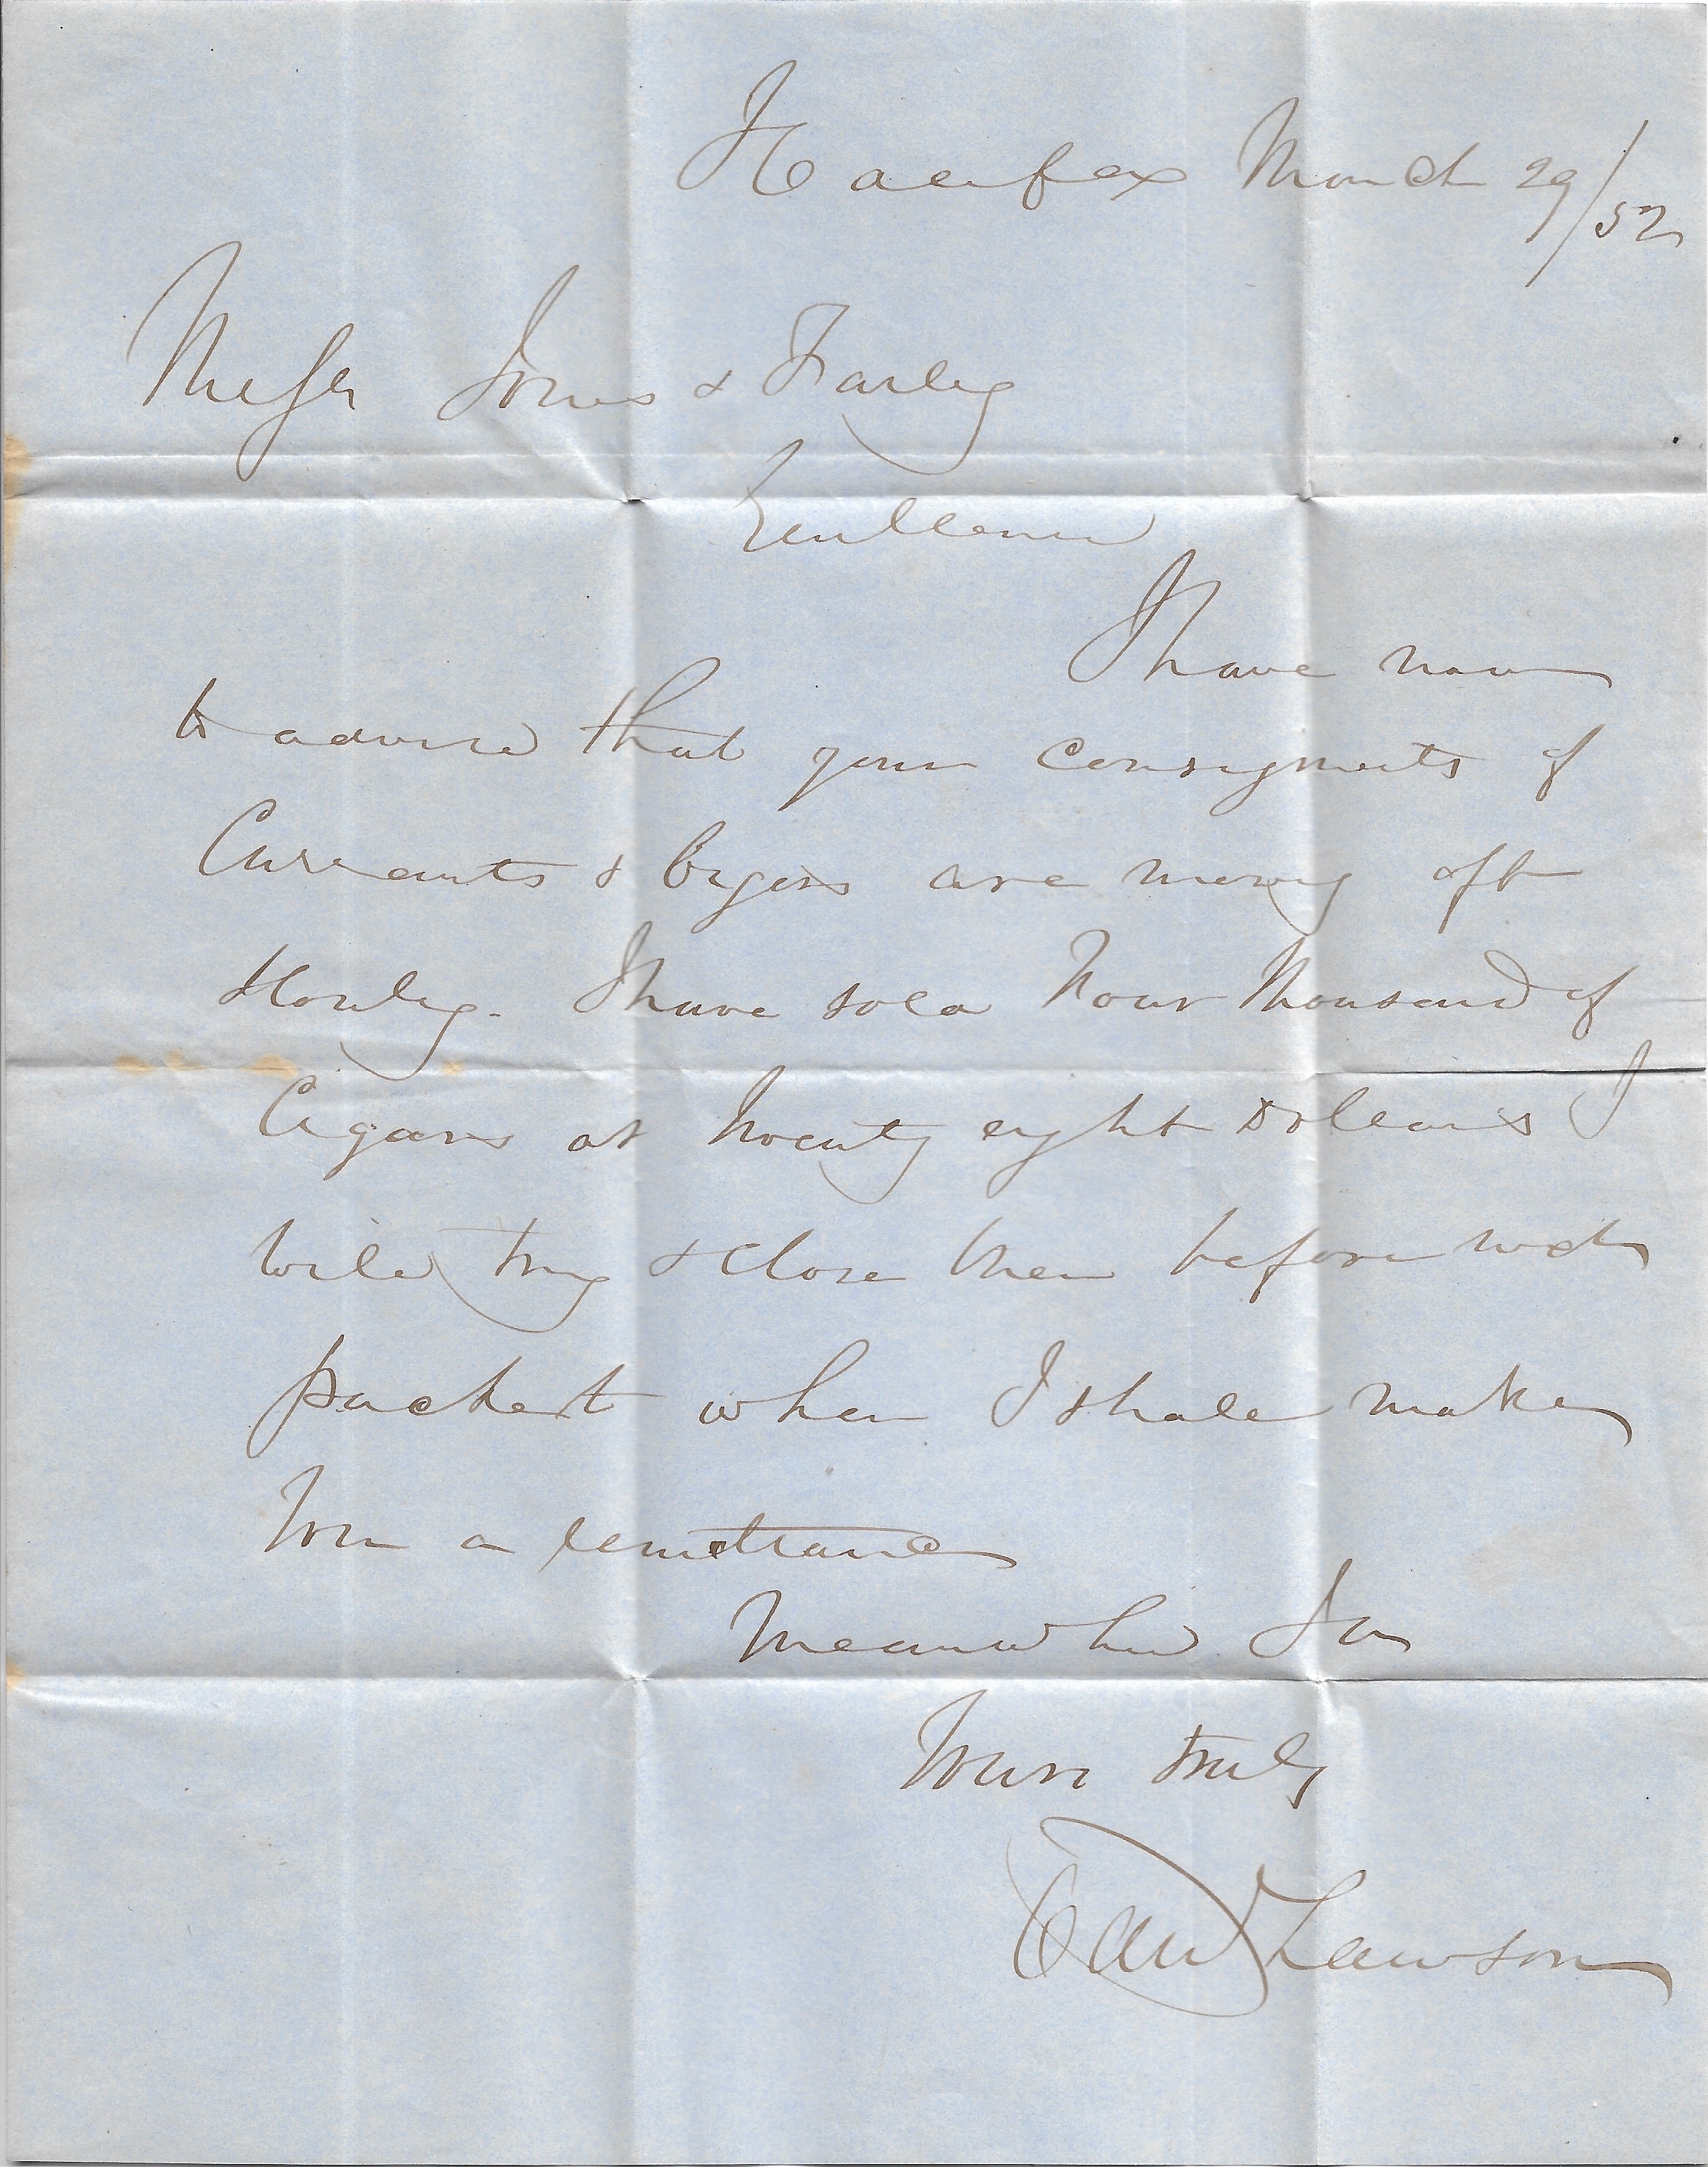 Halifax March 29/52
Messrs Jones & Farley
Gentlemen
I have now
to advise that your Consignments of
Currants & Cigars are moving off
slowly. I have sold Four Thousand of
Cigars at Twenty eight dollars I
will try & close them before next
packet when I shall make
You a remittance
Meanwhile I am
Yours truly
Edwd Lawson